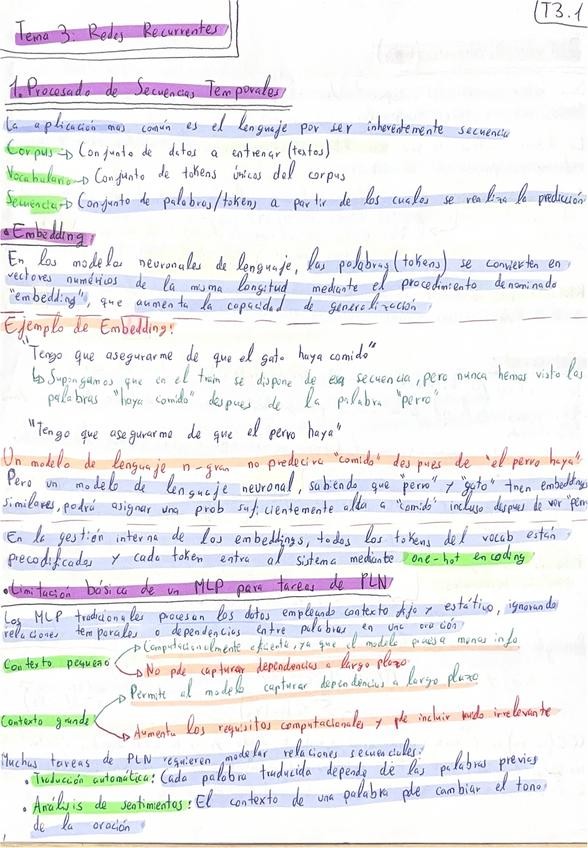 T3.1
Tema 3: Redes Recurrentes
1. Procesado de Secuencias Temporales
La aplicación mas común es el lenguaje por ser inherentemente secuencia
Corpus → Conjunto de datos a entrenar (textos)
Vocabulario → Conjunto de tokens únicos del corpus
Secuencia → Conjunto de palabras/tokens a partir de los cuales se realiza la predicción
• Embedding:
En los modelos neuronales de lenguaje, las palabras (tokens) se convierten en
vectores numéricos de la misma longitud mediante el procedimiento denominado
"embedding", que aumenta la capacidad de generalización
Ejemplo de Embedding:
"Tengo que asegurarme de que el gato haya comido"
↳ Supongamos que en el train se dispone de esa secuencia, pero nunca hemos visto las
palabras "haya comido" despues de la palabra "perro"
"Tengo que asegurarme de que el perro haya"
Un modelo de lenguaje n-gran no predecira "comido" despues de "el perro haya"
Pero un modelo de lenguaje neuronal, sabiendo que "perro" y "gato" tnen embeddings
similares, podrá asignar una prob suficientemente alta a "comido" incluso despues de ver "perr
En la gestión interna de los embeddings, todos los tokens del vocab están
precodificados y cada token entra al sistema mediante one-hot encoding
• Limitación básica de un MLP para tareas de PLN
Los MLP tradicionales procesan los datos empleando contexto fijo y estático, ignorando
relaciones temporales o dependencias entre palabras en una oración
→ Computacionalmente eficiente, ya que el modelo procesa menos info
Contexto pequeño
→ No pde capturar dependencias a largo plazo
→ Permite al modelo capturar dependencias a largo plazo
Contexto grande
→ Aumenta los requisitos computacionales y pde incluir ruido irrelevante
Muchas tareas de PLN requieren modelar relaciones secuenciales:
• Traducción automática: Cada palabra traducida depende de las palabras previas
• Análisis de sentimientos: El contexto de una palabra pde cambiar el tono
de la oración